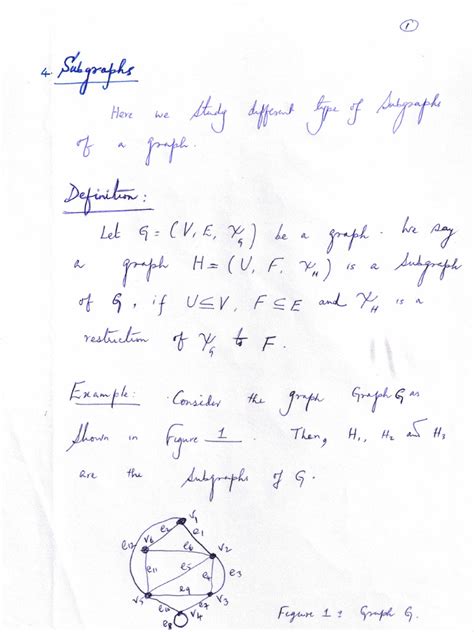 1
4. Subgraphs
Here we study different type of subgraphs
of a graph.
Definition:
Let G = (V, E, Ψ_G) be a graph. We say
a graph H = (U, F, Ψ_H) is a subgraph
of G, if U ⊆ V, F ⊆ E and Ψ_H is a
restriction of Ψ_G to F.
Example: Consider the graph Graph G as
shown in Figure 1. Then, H₁, H₂ and H₃
are the subgraphs of G.
v₁
e₂ e₁
v₆ e₆ v₂
e₁₁ e₅ e₄ e₃
e₉
v₅ v₃
e₇
v₄
e₈
Figure 1: Graph G.